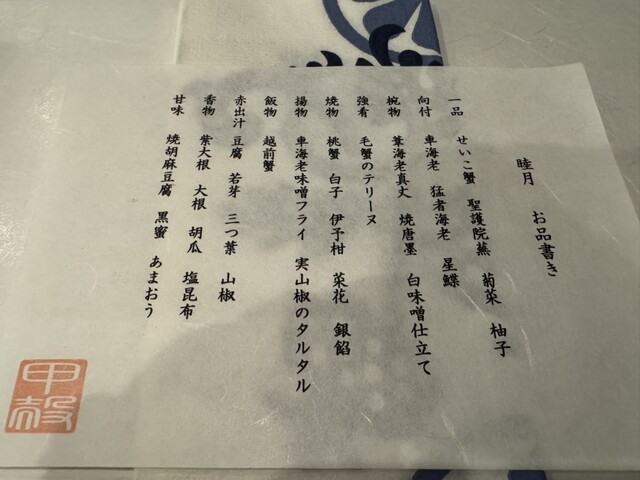 睦月 お品書き
一品 せいこ蟹 聖護院蕪 菊菜 柚子
向付 車海老 猛者海老 星鰈
椀物 葦海老真丈 焼唐墨 白味噌仕立て
強肴 毛蟹のテリーヌ
焼物 桃蟹 白子 伊予柑 菜花 銀餡
揚物 車海老味噌フライ 実山椒のタルタル
飯物 越前蟹
赤出汁 豆腐 若芽 三つ葉 山椒
香物 紫大根 大根 胡瓜 塩昆布
甘味 焼胡麻豆腐 黒蜜 あまおう
甲殻